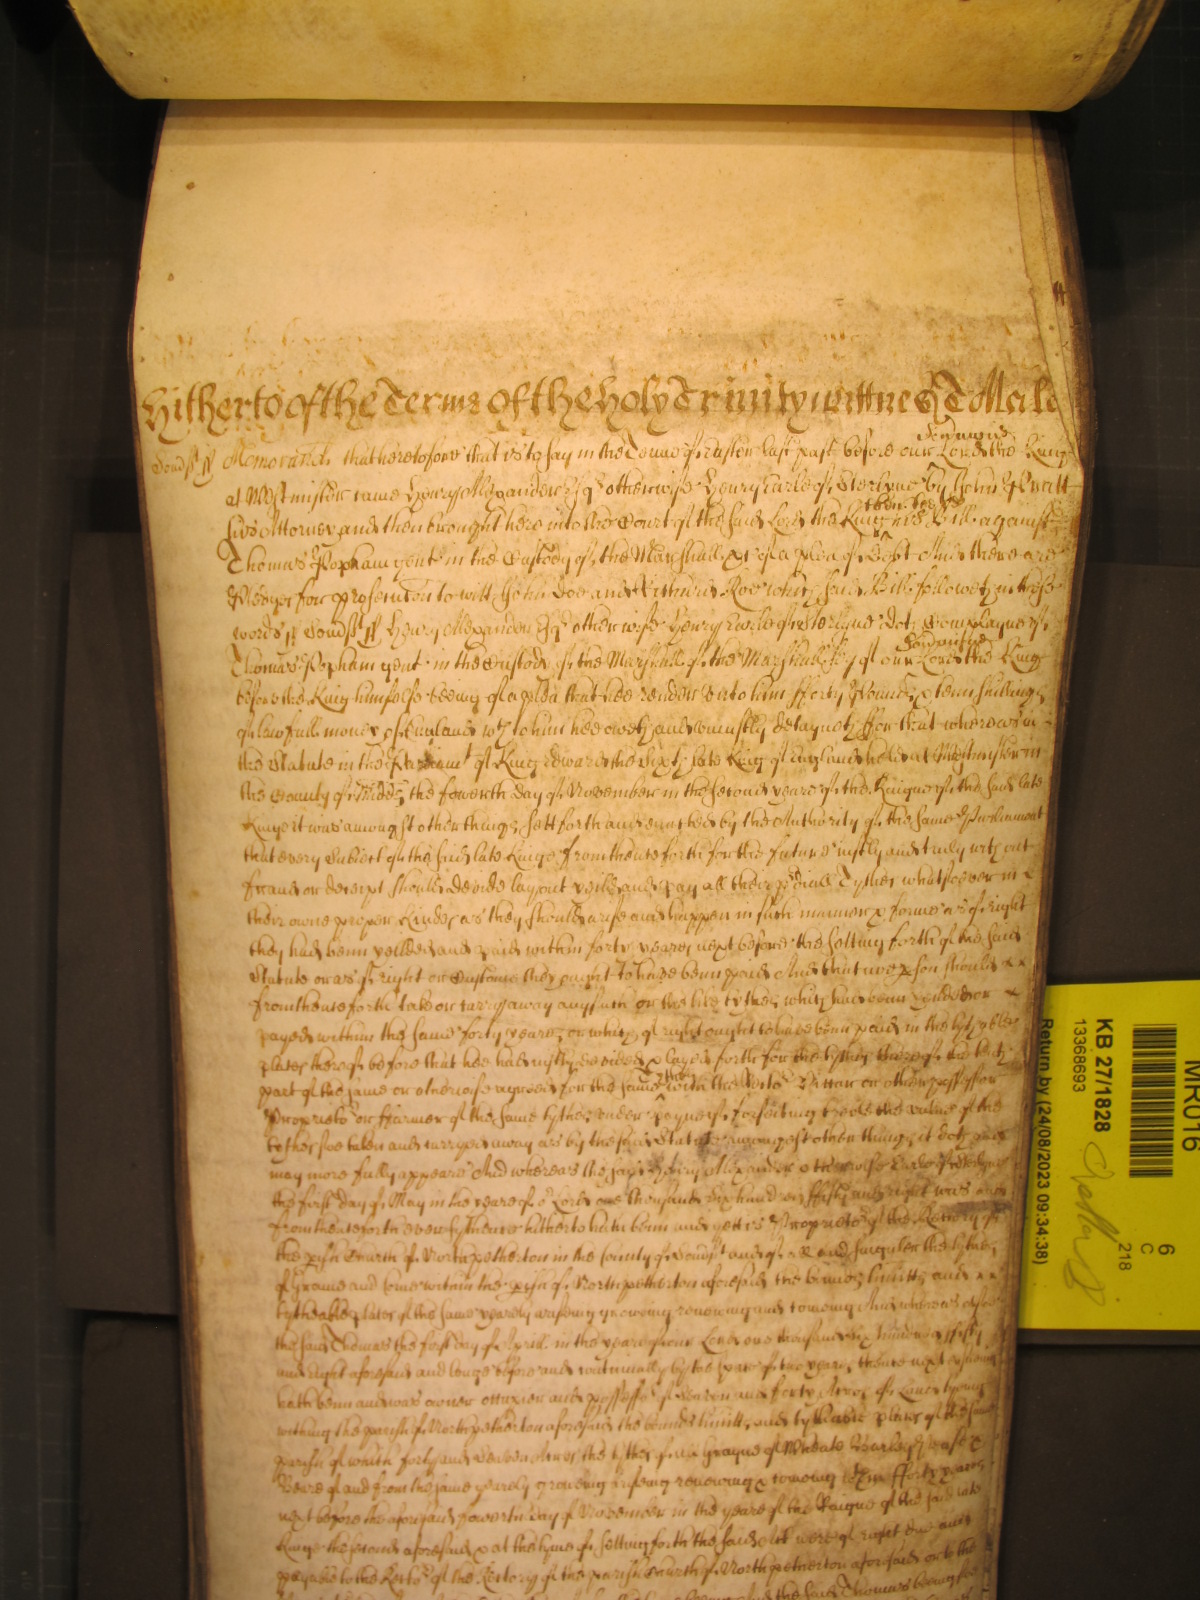 Hitherto of the Terme of the Holy Trinity wittnes T Male
Somst ss Memorand that heretofore that is to say in the Terme of Easter last past before our Lord the King
at Westminster came Henry Allexander Esqr otherwise Henry Earle of Sterlyne by John
his Attorney and then brought here into the Court of the said Lord the King then here his Bill against
Thomas Popham gent in the Custody of the Marshall &c of a plea of Debt And there are
Pledges for prosecution to witt John Doe and Richard Roe which said Bill followeth in these
words ss Somst ss Henry Allexander Esqr otherwise Henry Earle of Sterlyne doth Complayne of
Thomas Popham gent in the Custody of the Marshall of the Marshallsey of our Lord the King
before the King himselfe being of a plea that hee render unto him fforty Pounds & tenn shillings
of lawfull money of England wch to him hee oweth and uniustly detayneth ffor that whereas in
the Statute in the Parliamt of King Edward the Sixth late King of England held at Westminster in
the County of Midds the fowerth day of November in the second yeare of the Raigne of the said late
Kinge it was amongst other things sett forth and enacted by the Authority of the same Parliament
that every Subiect of the said late Kinge from thenceforth for the future iustly and truly without
fraud or deceipt should devide lay out yeild and pay all their prdiall Tythes whatsoever in
their owne proper kindes as they should arise and happen in such manner & forme as of right
they had benn yeilded and paid within forty yeares next before the setting forth of the said
Statute or as of right or Custome they ought to have benn paid And that noe pson should
from thenceforth take or carry away any such or the like tythes which had benn yeilded or
payed within the same forty yeares or which of right ought to have benn paid in the tytheable
places thereof before that hee had iustly devided & layed forth for the tythes thereof the tenth
part of the same or otherwise agreed for the same tythes with the Rector Viccar or other possessor
Proprietor or ffarmer of the same tythes under payne of forfeiting treble the value of the
tythes soe taken and carryed away as by the said Statute amongest other things it doth
may more fully appeare And whereas the said Henry Allexander otherwise Earle of Sterlyne
the first day of May in the yeare of or Lord one thousand six hundred ffifty and eight was and
from thenceforth ever hitherto hath benn and yett is Proprietor of the Rectory of
the pish Church of Northpetherton in the County of Somst and of all and singuler the tythes
of Graine and Corne within the pish of Northpetherton aforesaid the bounds limitts and
tytheable places of the same yearely ariseing groweing renewing and comeing And whereas
the said Thomas the first day of Aprill in the yeare of our Lord one thousand six hundred ffifty
and eight aforesaid and longe before and continually by the space of two yeares thence next ensueing
hath benn and was owner occupier and possessor of Seaven and forty Acres of Land lyeing
within the parish of Northpetherton aforesaid the bounds limitts and tytheable places of the same
parish of which forty and seaven Acres the tythes of all Grayne of Wheate Barley &
Beane of and from the same yearely groweing ariseing renewing & comeing fforty yeares
next before the aforesaid fowerth day of November in the yeare of the Raigne of the said late
Kinge the second aforesaid & at the tyme of setting forth the said Act were of right due and
payable to the Rector of the Rectory of the parish Church of Northpetherton aforesaid or to the
MR016
KB 27/1828
13368693
Return by (24/08/2023 09:34:38)
6
C
218